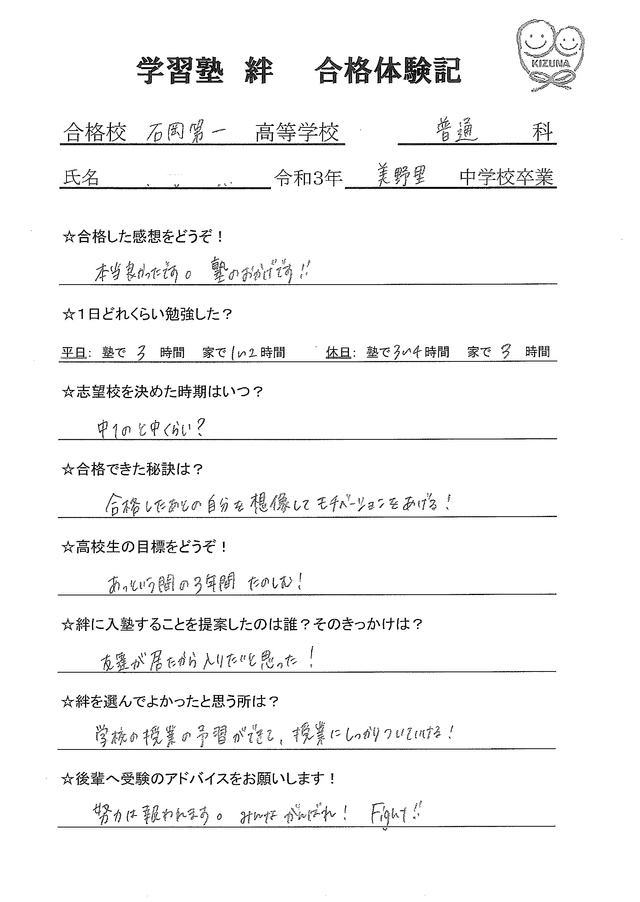 学習塾 絆 合格体験記
KIZUNA
合格校 石岡第一 高等学校 普通 科
氏名 令和3年 美野里 中学校卒業
☆合格した感想をどうぞ！
本当良かったです。 塾のおかげです!!
☆1日どれくらい勉強した？
平日: 塾で 3 時間 家で1~2時間 休日: 塾で3~4時間 家で 3 時間
☆志望校を決めた時期はいつ？
中1のと中くらい?
☆合格できた秘訣は？
合格したあとの自分を想像してモチベーションをあげる!
☆高校生の目標をどうぞ！
あっという間の3年間 たのしむ!
☆絆に入塾することを提案したのは誰？そのきっかけは？
友達が居たから入りたいと思った!
☆絆を選んでよかったと思う所は？
学校の授業の予習ができて、授業にしっかりついていける!
☆後輩へ受験のアドバイスをお願いします！
努力は報われます。 みんながんばれ! Fight!!